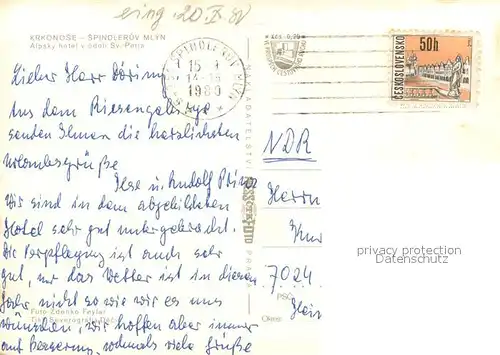 eing. 20.
KRKONOŠE - ŠPINDLERŮV MLÝN
Alpský hotel v údolí Sv. Petra
Lieber Herr Döring
Aus dem Riesengebirge
senden Ihnen die herzlichsten
Urlaubsgrüße
Ilse u. Rudolf Prinz
Wir sind in dem abgebildeten
Hotel sehr gut untergebracht.
Die Verpflegung ist auch sehr
gut, nur das Wetter ist in diesem
Jahr nicht so wie wir es uns
wünschen, wir hoffen aber immer
auf Besserung, nochmals viele Grüße
Foto Zdenko Feyfar
Tisk Severografia
ŠPINDLERŮV MLÝN
1980
ČESKOSLOVENSKO
50h
NDR
Herrn
Kur
7024
PSČ
Okres:
privacy protection
Datenschutz